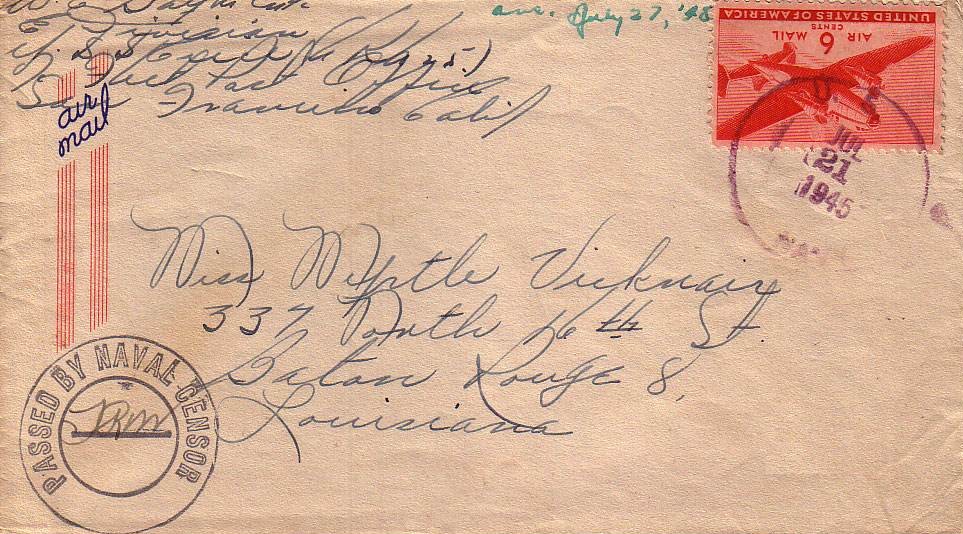 Division
Fleet Post Office
San Francisco Calif
air
mail
ans. July 27, '45
UNITED STATES OF AMERICA
CENTS
6
AIR MAIL
U. S.
JUL
21
1945
NAVY
Miss Myrtle Vicknair
337 North 16th St.
Baton Rouge 8,
Louisiana
PASSED BY NAVAL CENSOR